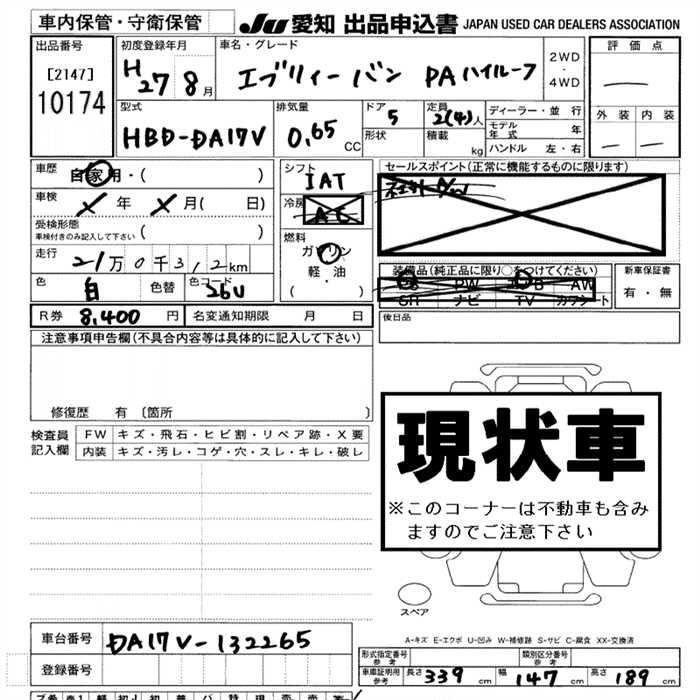 車内保管・守衛保管
JU 愛知 出品申込書 JAPAN USED CAR DEALERS ASSOCIATION
出品番号
[2147]
10174
初度登録年月
H27 8月
車名・グレード
エブリィーバン PAハイルーフ
2WD
・
4WD
評価点
外装 内装
型式
HBD-DA17V
排気量
0.65 CC
ドア
5
形状
定員
2(4)人
積載 kg
ディーラー・並行
モデル年式 年
ハンドル 左・右
車歴
自家用・( )
車検
X 年 X 月( 日)
受検形態
車検付きのみ記入して下さい ( )
走行
21万0千312km
色
白
色替
色コード
26U
シフト
IAT
冷房
AC
燃料
ガソリン
軽・油
( )
セールスポイント(正常に機能するものに限ります)
装備品(純正品に限り○をつけてください)
PS PW AB AW
SR ナビ TV カワシート
新車保証書
有・無
後日品
R券 8,400 円 名変通知期限 月 日
注意事項申告欄(不具合内容等は具体的に記入して下さい)
修復歴 有 〔箇所 〕
検査員記入欄
FW キズ・飛石・ヒビ割・リペア跡・X要
内装 キズ・汚レ・コゲ・穴・スレ・キレ・破レ
現状車
※このコーナーは不動車も含み
ますのでご注意下さい
スペア
A-キズ E-エクボ U-凹み W-補修跡 S-サビ C-腐食 XX-交換済
車台番号 DA17V-132265
登録番号
形式指定番号 参考
類別区分番号 参考
車庫証明用 参考 長さ 339 cm 幅 147 cm 高さ 189 cm